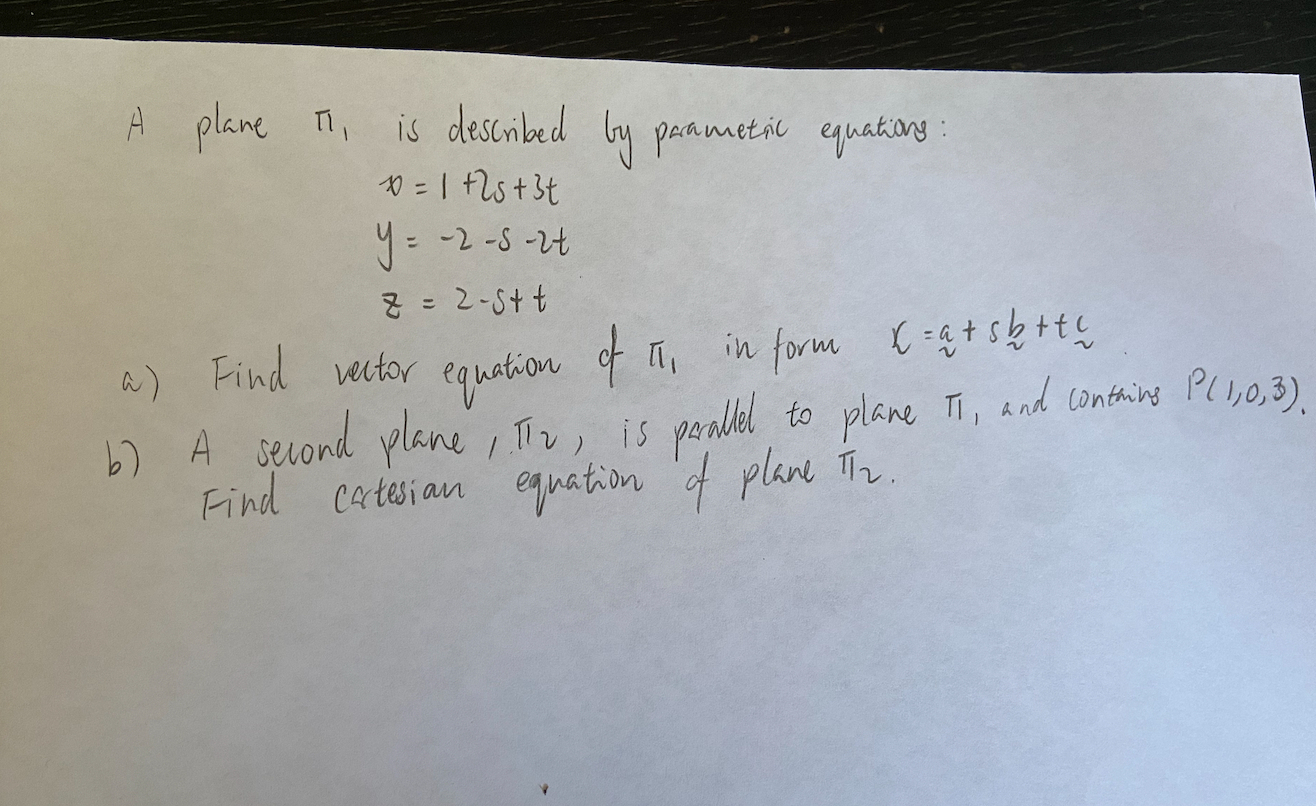 A plane π₁ is described by parametric equations:
x = 1 + 2s + 3t
y = -2 - s - 2t
z = 2 - s + t
a) Find vector equation of π₁ in form r = a + s b + t c
b) A second plane, π₂, is parallel to plane π₁ and contains P(1,0,3).
Find cartesian equation of plane π₂.